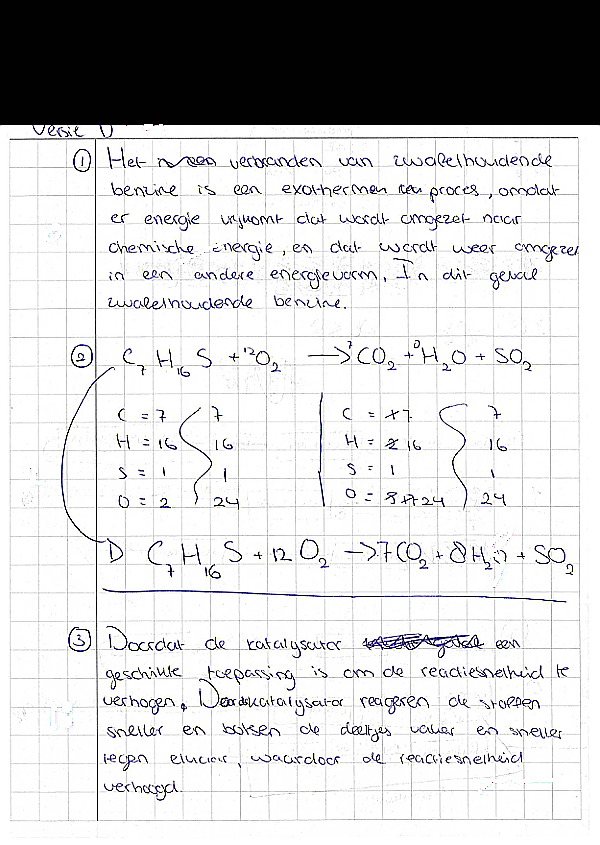 Versie D
① Het verbranden van zwavelhoudende
benzine is een exothermen proces, omdat
er energie vrijkomt dat wordt omgezet naar
chemische energie, en dat wordt weer omgezet
in een andere energievorm, In dit geval
zwavelhoudende benzine.
② C₇H₁₆S + 12O₂ → 7CO₂ + 8H₂O + SO₂
C = 7 7 C = 7 7
H = 16 16 H = 16 16
S = 1 1 S = 1 1
O = 2 24 O = 24 24
D C₇H₁₆S + 12O₂ → 7CO₂ + 8H₂O + SO₂
③ Doordat de katalysator een
geschikte toepassing is om de reactiesnelheid te
verhogen. Door katalysator reageren de stoffen
sneller en botsen de deeltjes vaker en sneller
tegen elkaar, waardoor de reactiesnelheid
verhoogd.